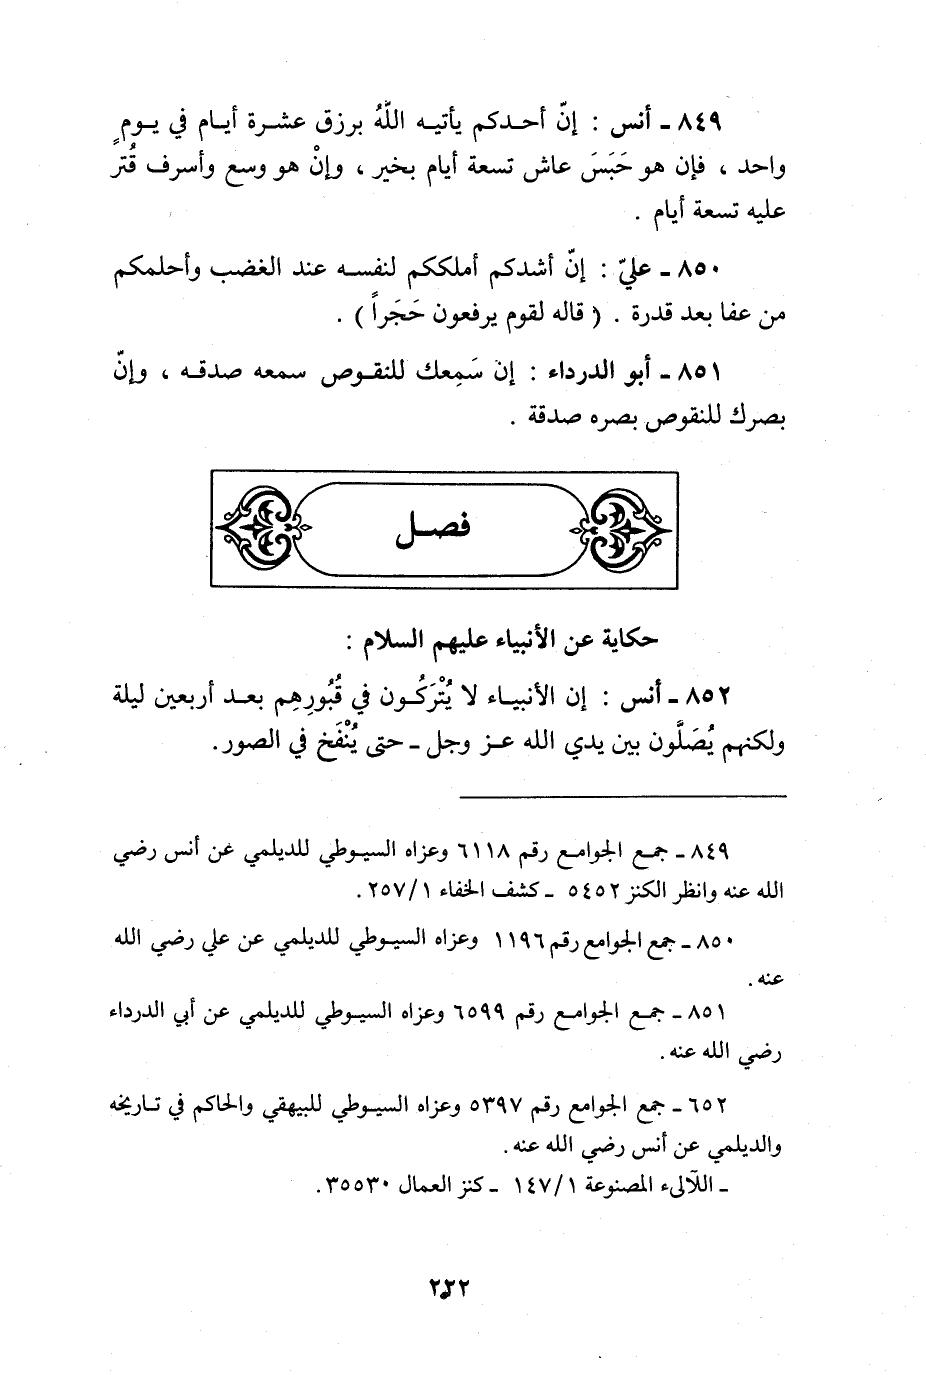 ٨٤٩ ـ أنس : إنّ أحـدكم يأتيـه اللّهُ برزق عشـرة أيـام في يـومٍ
واحد ، فإن هو حَبَسَ عاش تسعة أيام بخير ، وإنْ هو وسع وأسرف قُتر
عليه تسعة أيام .
٨٥٠ ـ عليّ : إنّ أشدكم أملككم لنفسـه عند الغضب وأحلمكم
من عفا بعد قدرة . ( قاله لقوم يرفعون حَجَراً ) .
٨٥١ ـ أبو الدرداء : إن سَمِعك للنقـوص سمعه صدقـه ، وإنّ
بصرك للنقوص بصره صدقة .
فصـل
حكاية عن الأنبياء عليهم السلام :
٨٥٢ ـ أنس : إن الأنبيـاء لا يُتْرَكُـون في قُبُورِهِم بعـد أربعين ليلة
ولكنهم يُصَلَّون بين يدي الله عـز وجل ـ حتى يُنْفَخ في الصور.
٨٤٩ ـ جمـع الجوامـع رقم ٦١١٨ وعزاه السيـوطي للديلمي عن أنس رضي
الله عنه وانظر الكنز ٥٤٥٢ ـ كشف الخفاء ٢٥٧/١.
٨٥٠ ـ جمع الجوامع رقم ١١٩٦ وعزاه السيوطي للديلمي عن علي رضي الله
عنه.
٨٥١ ـ جمـع الجوامـع رقم ٦٥٩٩ وعزاه السيـوطي للديلمي عن أبي الدرداء
رضي الله عنه.
٦٥٢ ـ جمع الجوامع رقم ٥٣٩٧ وعزاه السيـوطي للبيهقي والحاكم في تـاريخه
والديلمي عن أنس رضي الله عنه.
ـ اللآلىء المصنوعة ١٤٧/١ ـ كنز العمال ٣٥٥٣٠.
٢٢٢